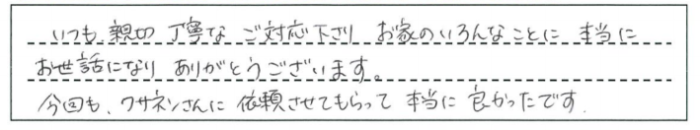 いつも、親切 丁寧な ご対応下さり お家のいろんなことに 本当に
お世話になり ありがとうございます。
今回も、ワサネンさんに 依頼させてもらって 本当に 良かったです.